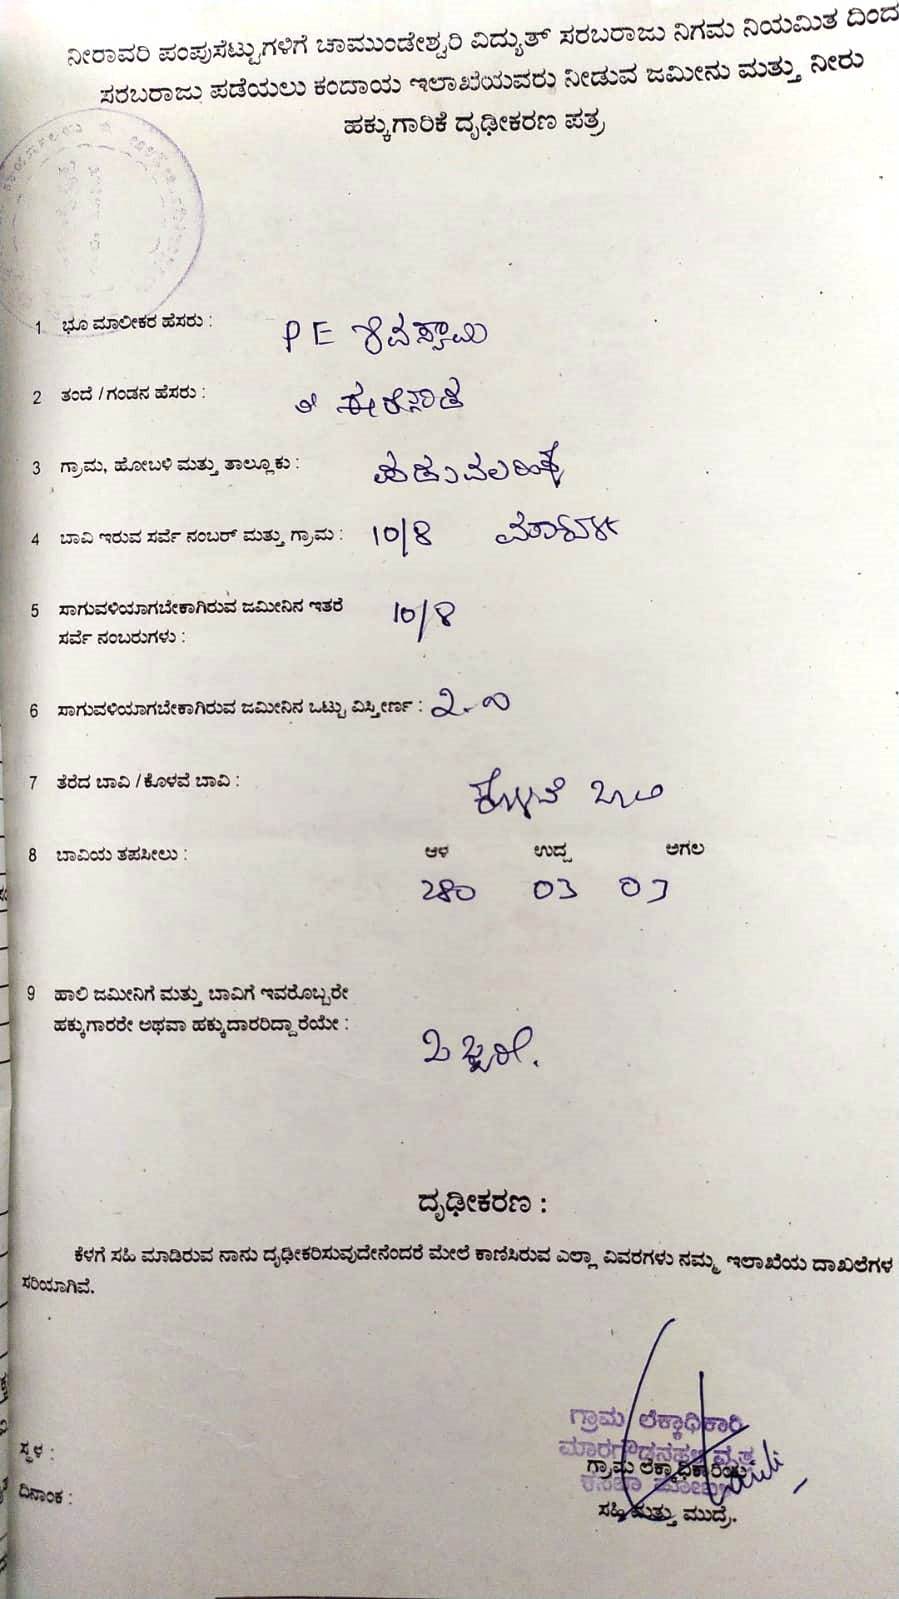 ನೀರಾವರಿ ಪಂಪುಸೆಟ್ಟುಗಳಿಗೆ ಚಾಮುಂಡೇಶ್ವರಿ ವಿದ್ಯುತ್ ಸರಬರಾಜು ನಿಗಮ ನಿಯಮಿತ ದಿಂದ
ಸರಬರಾಜು ಪಡೆಯಲು ಕಂದಾಯ ಇಲಾಖೆಯವರು ನೀಡುವ ಜಮೀನು ಮತ್ತು ನೀರು
ಹಕ್ಕುಗಾರಿಕೆ ದೃಢೀಕರಣ ಪತ್ರ
1 ಭೂ ಮಾಲೀಕರ ಹೆಸರು : P E ಶಿವಸ್ವಾಮಿ
2 ತಂದೆ / ಗಂಡನ ಹೆಸರು :
3 ಗ್ರಾಮ, ಹೋಬಳಿ ಮತ್ತು ತಾಲ್ಲೂಕು :
4 ಬಾವಿ ಇರುವ ಸರ್ವೆ ನಂಬರ್ ಮತ್ತು ಗ್ರಾಮ : 10/8
5 ಸಾಗುವಳಿಯಾಗಬೇಕಾಗಿರುವ ಜಮೀನಿನ ಇತರೆ 10/8
ಸರ್ವೆ ನಂಬರುಗಳು :
6 ಸಾಗುವಳಿಯಾಗಬೇಕಾಗಿರುವ ಜಮೀನಿನ ಒಟ್ಟು ವಿಸ್ತೀರ್ಣ : 2-00
7 ತೆರೆದ ಬಾವಿ / ಕೊಳವೆ ಬಾವಿ : ಕೊಳವೆ ಬಾವಿ
8 ಬಾವಿಯ ತಪಸೀಲು : ಆಳ ಉದ್ದ ಅಗಲ
280 03 03
9 ಹಾಲಿ ಜಮೀನಿಗೆ ಮತ್ತು ಬಾವಿಗೆ ಇವರೊಬ್ಬರೇ
ಹಕ್ಕುಗಾರರೇ ಅಥವಾ ಹಕ್ಕುದಾರರಿದ್ದಾರೆಯೇ : ಒಬ್ಬರೇ.
ದೃಢೀಕರಣ :
ಕೆಳಗೆ ಸಹಿ ಮಾಡಿರುವ ನಾನು ದೃಢೀಕರಿಸುವುದೇನೆಂದರೆ ಮೇಲೆ ಕಾಣಿಸಿರುವ ಎಲ್ಲಾ ವಿವರಗಳು ನಮ್ಮ ಇಲಾಖೆಯ ದಾಖಲೆಗಳ
ಸರಿಯಾಗಿವೆ.
ಗ್ರಾಮ ಲೆಕ್ಕಾಧಿಕಾರಿ
ಮಾರಗೌಡನಹಳ್ಳಿ ವೃತ್ತ
ಗ್ರಾಮ ಲೆಕ್ಕಾಧಿಕಾರಿಯ
ಕಸಬಾ ಹೋಬಳಿ
ಸ್ಥಳ :
ದಿನಾಂಕ :
ಸಹಿ ಮತ್ತು ಮುದ್ರೆ.